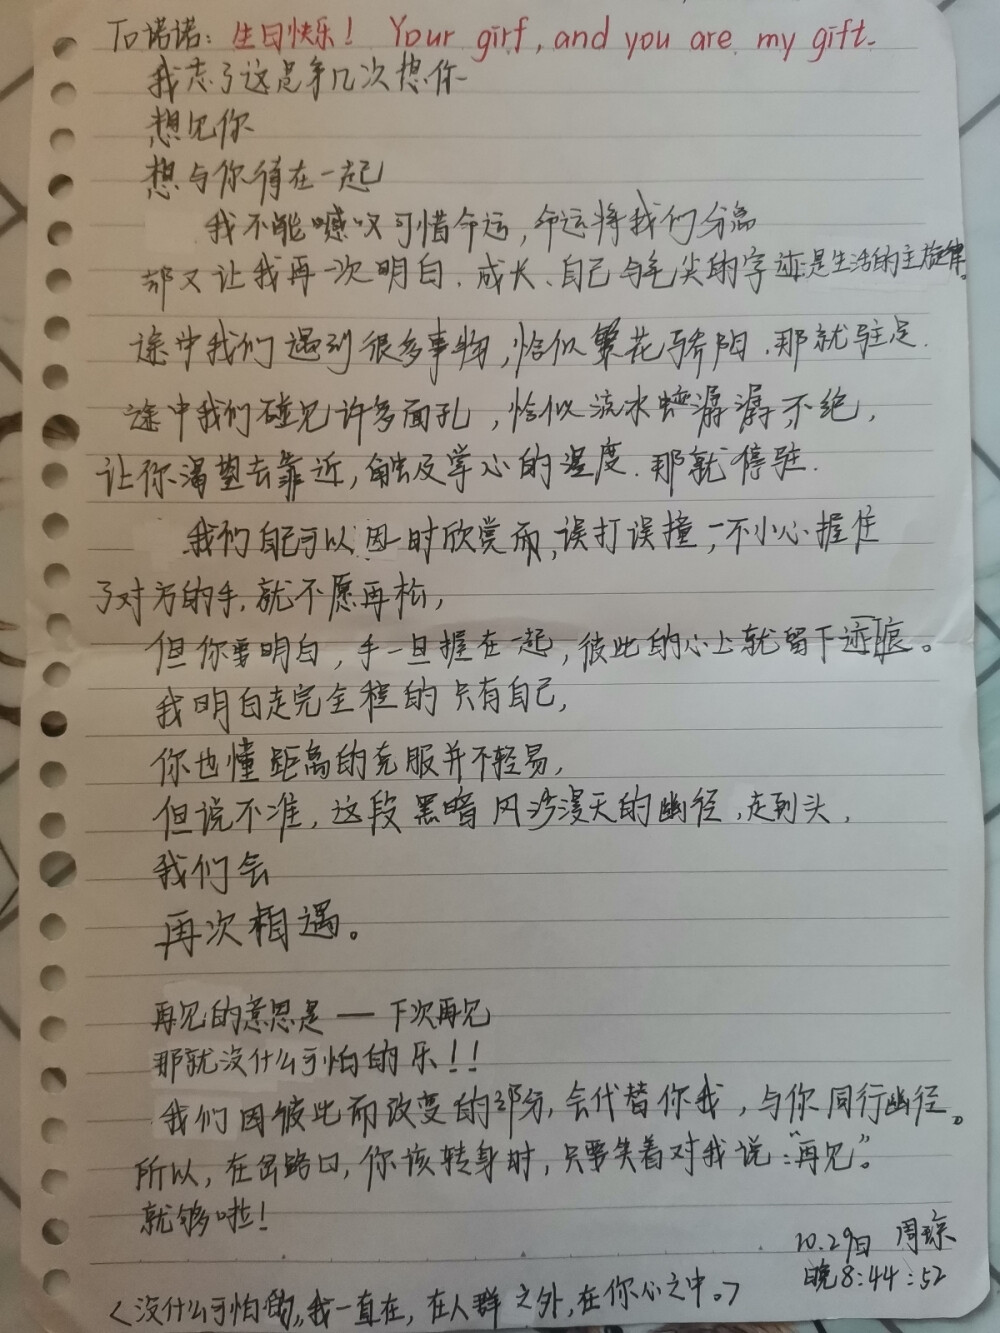 To诺诺：生日快乐！ Your girf, and you are my gift.
我忘了这是第几次想你
想见你
想与你待在一起
我不能憾叹可惜命运，命运将我们分离
却又让我再一次明白、成长、自己与笔尖的字迹是生活的主旋律。
途中我们遇到很多事物，恰似繁花骄阳，那就驻足.
途中我们碰见许多面孔，恰似流水 潺潺不绝，
让你渴望去靠近，触及掌心的温度.那就停驻.
我们自己可以因一时欣赏而，误打误撞，一不小心握住
了对方的手，就不愿再松，
但你要明白，手一旦握在一起，彼此的心上就留下迹痕。
我明白走完全程的只有自己，
你也懂距离的克服并不轻易，
但说不准，这段黑暗风沙漫天的幽径，走到头，
我们会
再次相遇。
再见的意思是——下次再见
那就没什么可怕的乐！！
我们因彼此而改变的部分，会代替你我，与你同行幽径。
所以，在岔路口，你该转身时，只要笑着对我说：“再见”。
就够啦！
10.29日 周琼
晚8:44:52
<没什么可怕的，我一直在，在人群之外，在你心之中。>